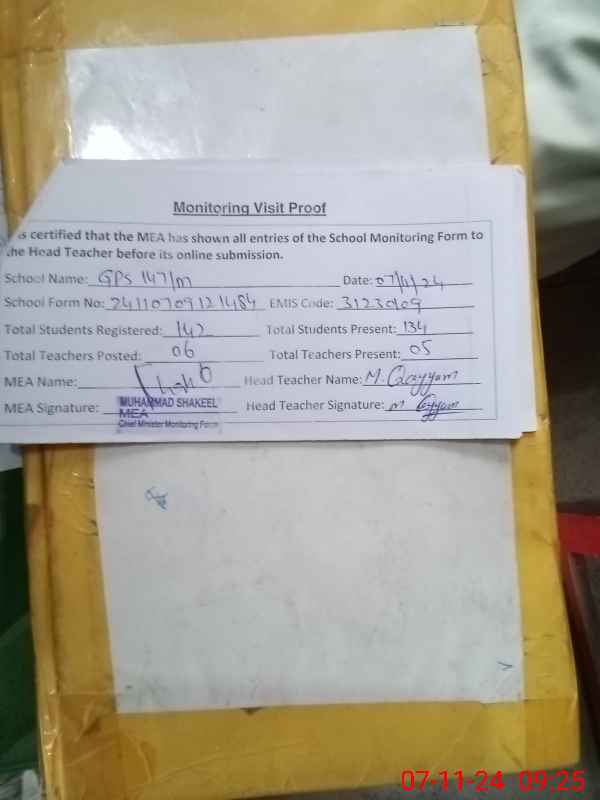 Monitoring Visit Proof
is certified that the MEA has shown all entries of the School Monitoring Form to
the Head Teacher before its online submission.
School Name: GPS 147/m Date: 07/11/24
School Form No: 24110709121484 EMIS Code:
Total Students Registered: 142 Total Students Present: 134
Total Teachers Posted: 06 Total Teachers Present: 05
MEA Name: Head Teacher Name: M. Qayyum
MEA Signature: MUHAMMAD SHAKEEL Head Teacher Signature: M Qayyum
MEA
Chief Minister Monitoring Force
07-11-24 09:25